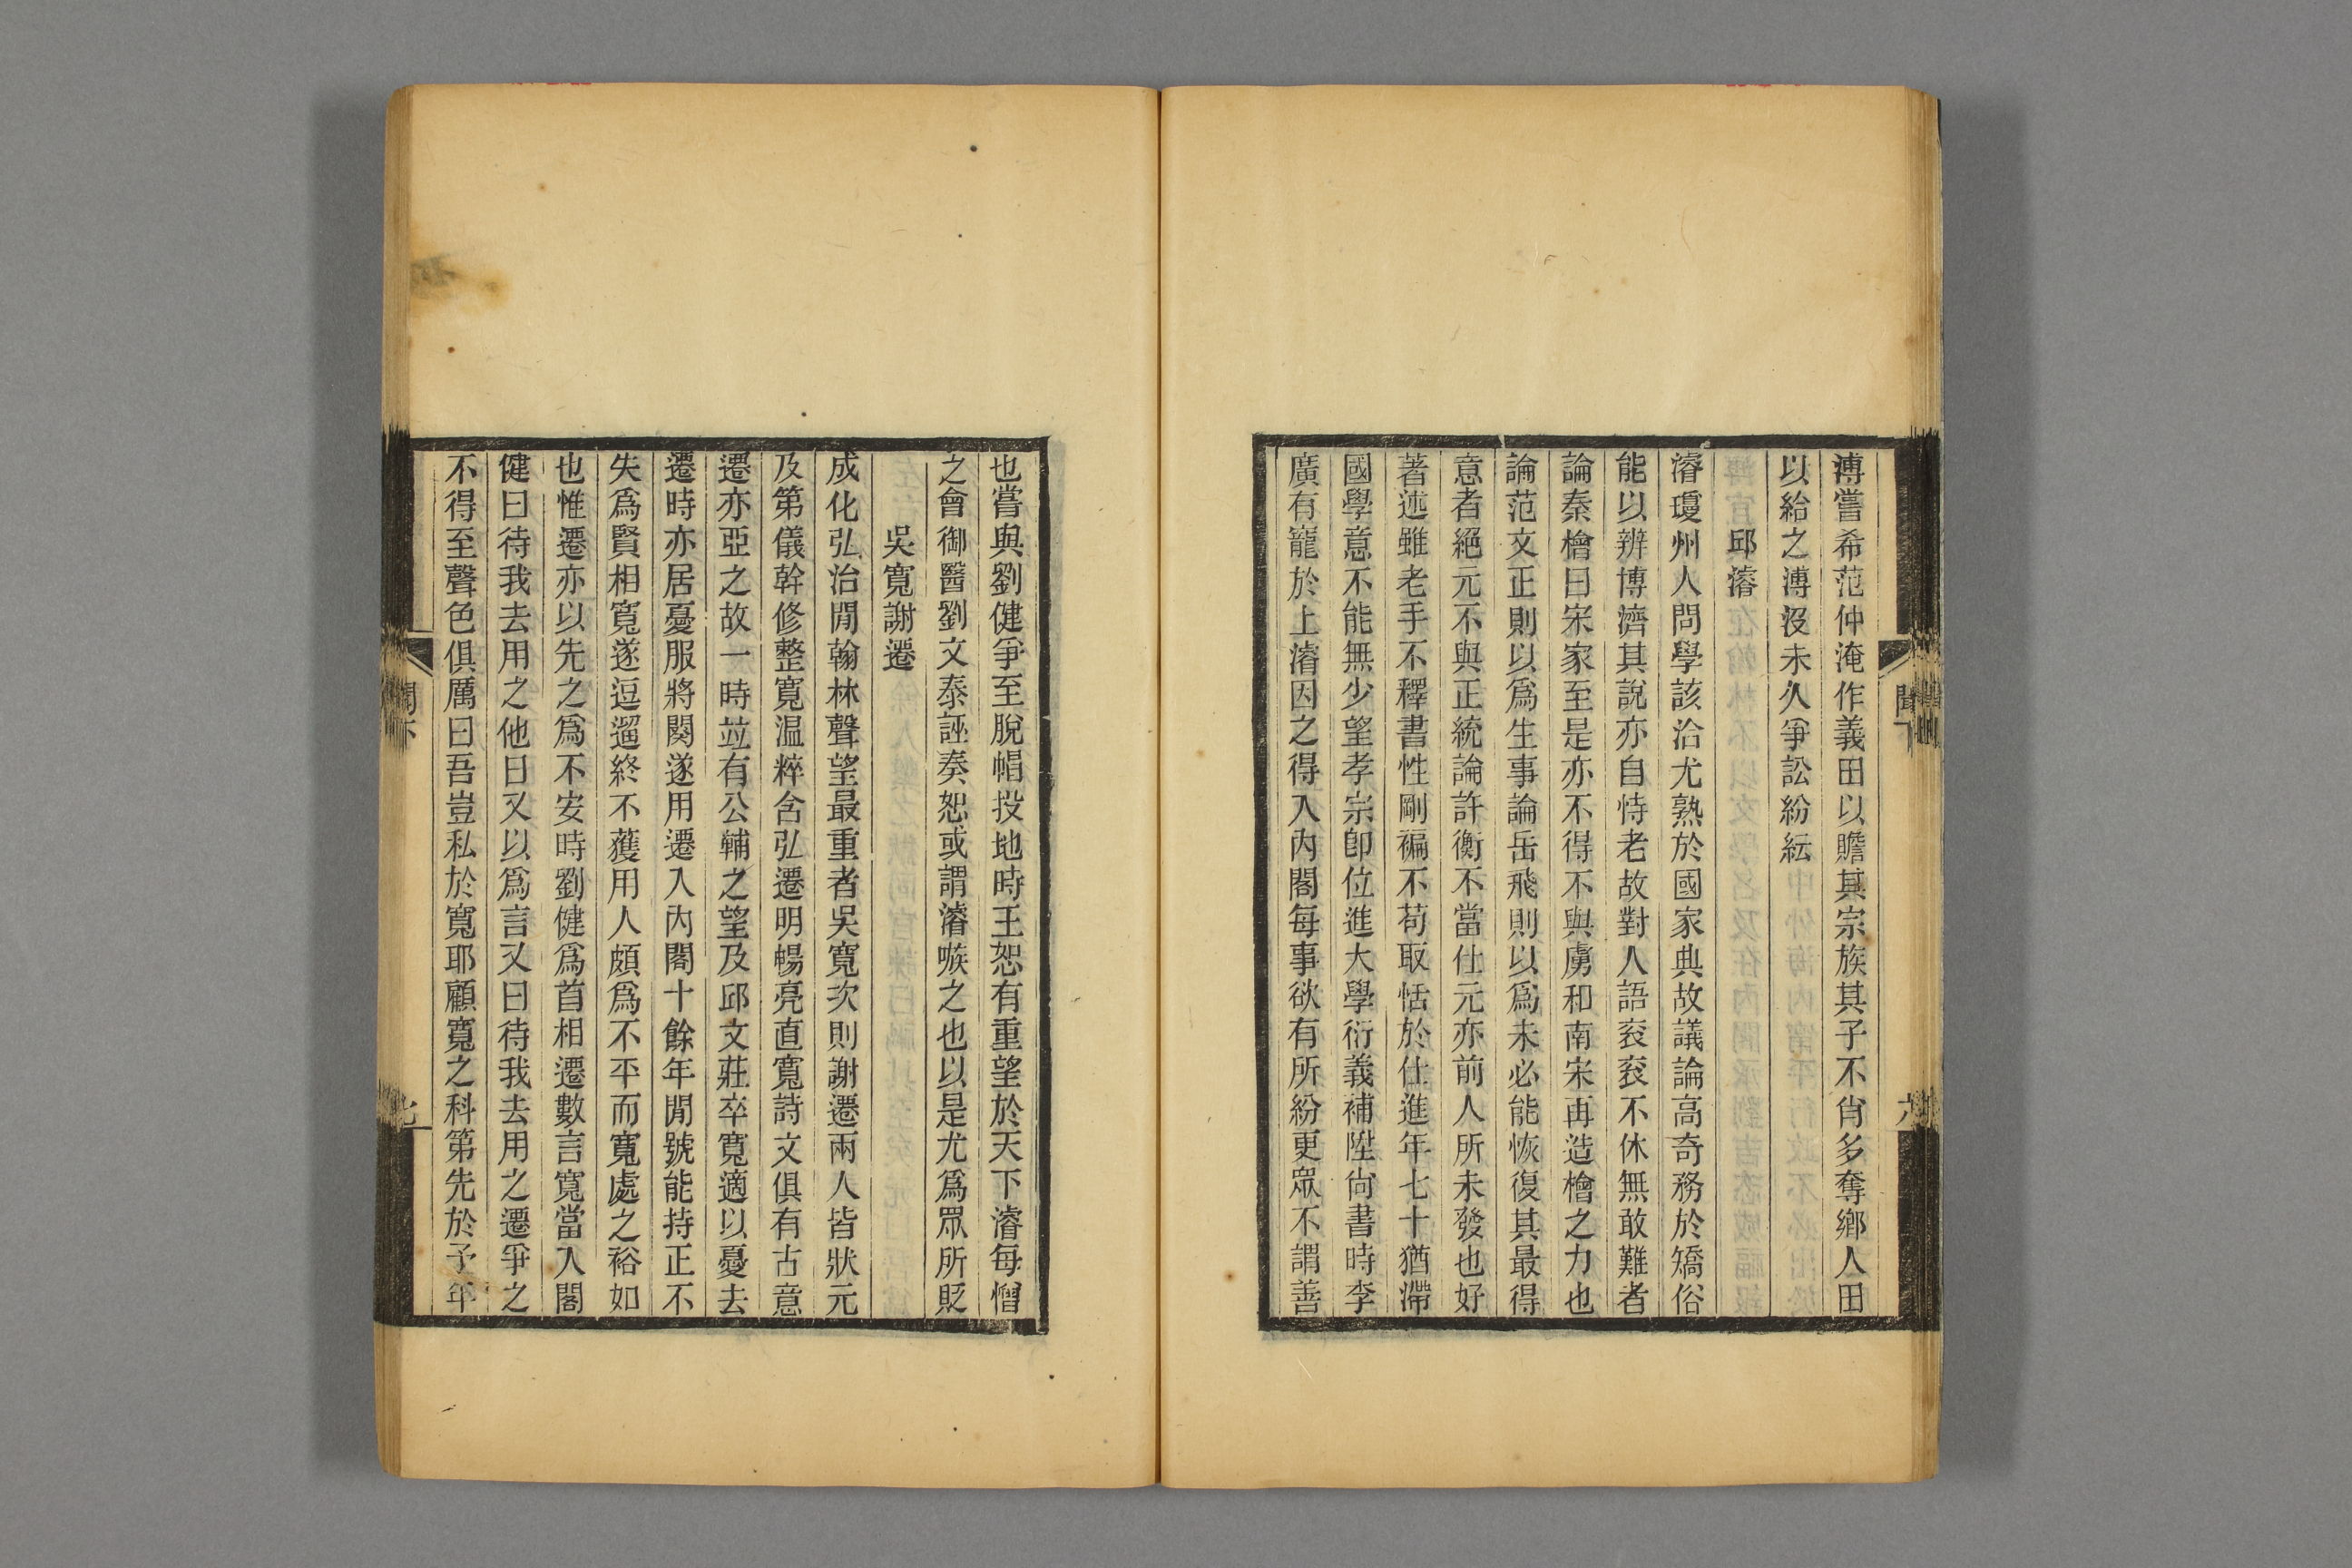 溥嘗希范仲淹作義田以贍其宗族其子不肖多奪鄉人田
以給之溥沒未久爭訟紛紜
邱濬
濬瓊州人問學該洽尤熟於國家典故議論高奇務於矯俗
能以辨博濟其說亦自恃老故對人語袞袞不休無敢難者
論秦檜曰宋家至是亦不得不與虜和南宋再造檜之力也
論范文正則以爲生事論岳飛則以爲未必能恢復其最得
意者絕元不與正統論許衡不當仕元亦前人所未發也好
著述雖老手不釋書性剛褊不苟取恬於仕進年七十猶滯
國學意不能無少望孝宗卽位進大學衍義補陞尙書時李
廣有寵於上濬因之得入內閣每事欲有所紛更眾不謂善
聞下
六
也嘗與劉健爭至脫帽投地時王恕有重望於天下濬每憎
之會御醫劉文泰誣奏恕或謂濬嗾之也以是尤爲眾所貶
吳寬謝遷
成化弘治間翰林聲望最重者吳寬次則謝遷兩人皆狀元
及第儀幹修整寬温粹含弘遷明暢亮直寬詩文俱有古意
遷亦亞之故一時竝有公輔之望及邱文莊卒寬適以憂去
遷時亦居憂服將闋遂用遷入內閣十餘年間號能持正不
失爲賢相寬遂逗遛終不獲用人頗爲不平而寬處之裕如
也惟遷亦以先之爲不安時劉健爲首相遷數言寬當入閣
健曰待我去用之他日又以爲言又曰待我去用之遷爭之
不得至聲色俱厲曰吾豈私於寬耶顧寬之科第先於予年
聞下
七